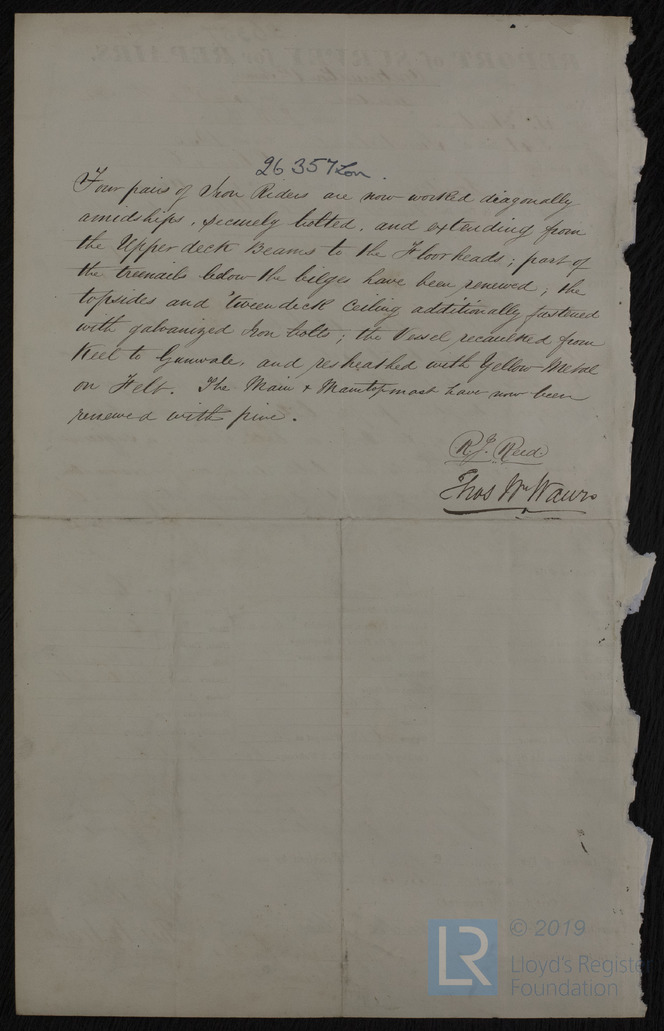 26357 Lon
Four pairs of Iron Riders are now worked diagonally
amidships, securely bolted, and extending from
the Upper deck Beams to the Floorheads; part of
the treenails below the bilges have been renewed; the
topsides and 'tweendeck Ceiling additionally fastened
with galvanized Iron bolts; the Vessel recaulked from
Keel to Gunwale, and resheathed with Yellow Metal
on Felt. The Main & Maintopmast have now been
renewed with pine.
R. J. Reed
Thos Wm Wawn
© 2019
LR Lloyd's Register
Foundation